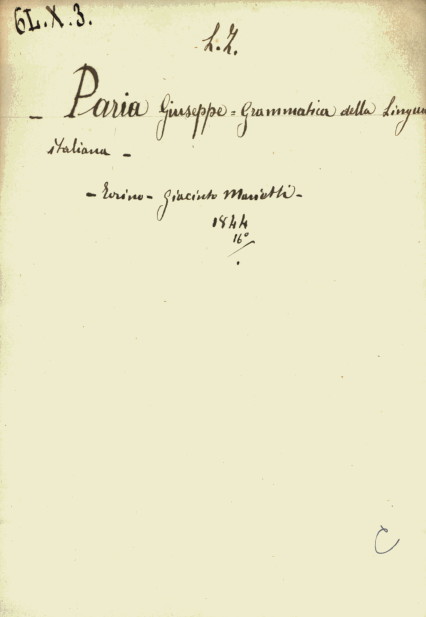 6L.X.3.
L.Z.
- Paria Giuseppe = Grammatica della Lingua
italiana -
- Torino - Giacinto Marietti -
1844
16°
C